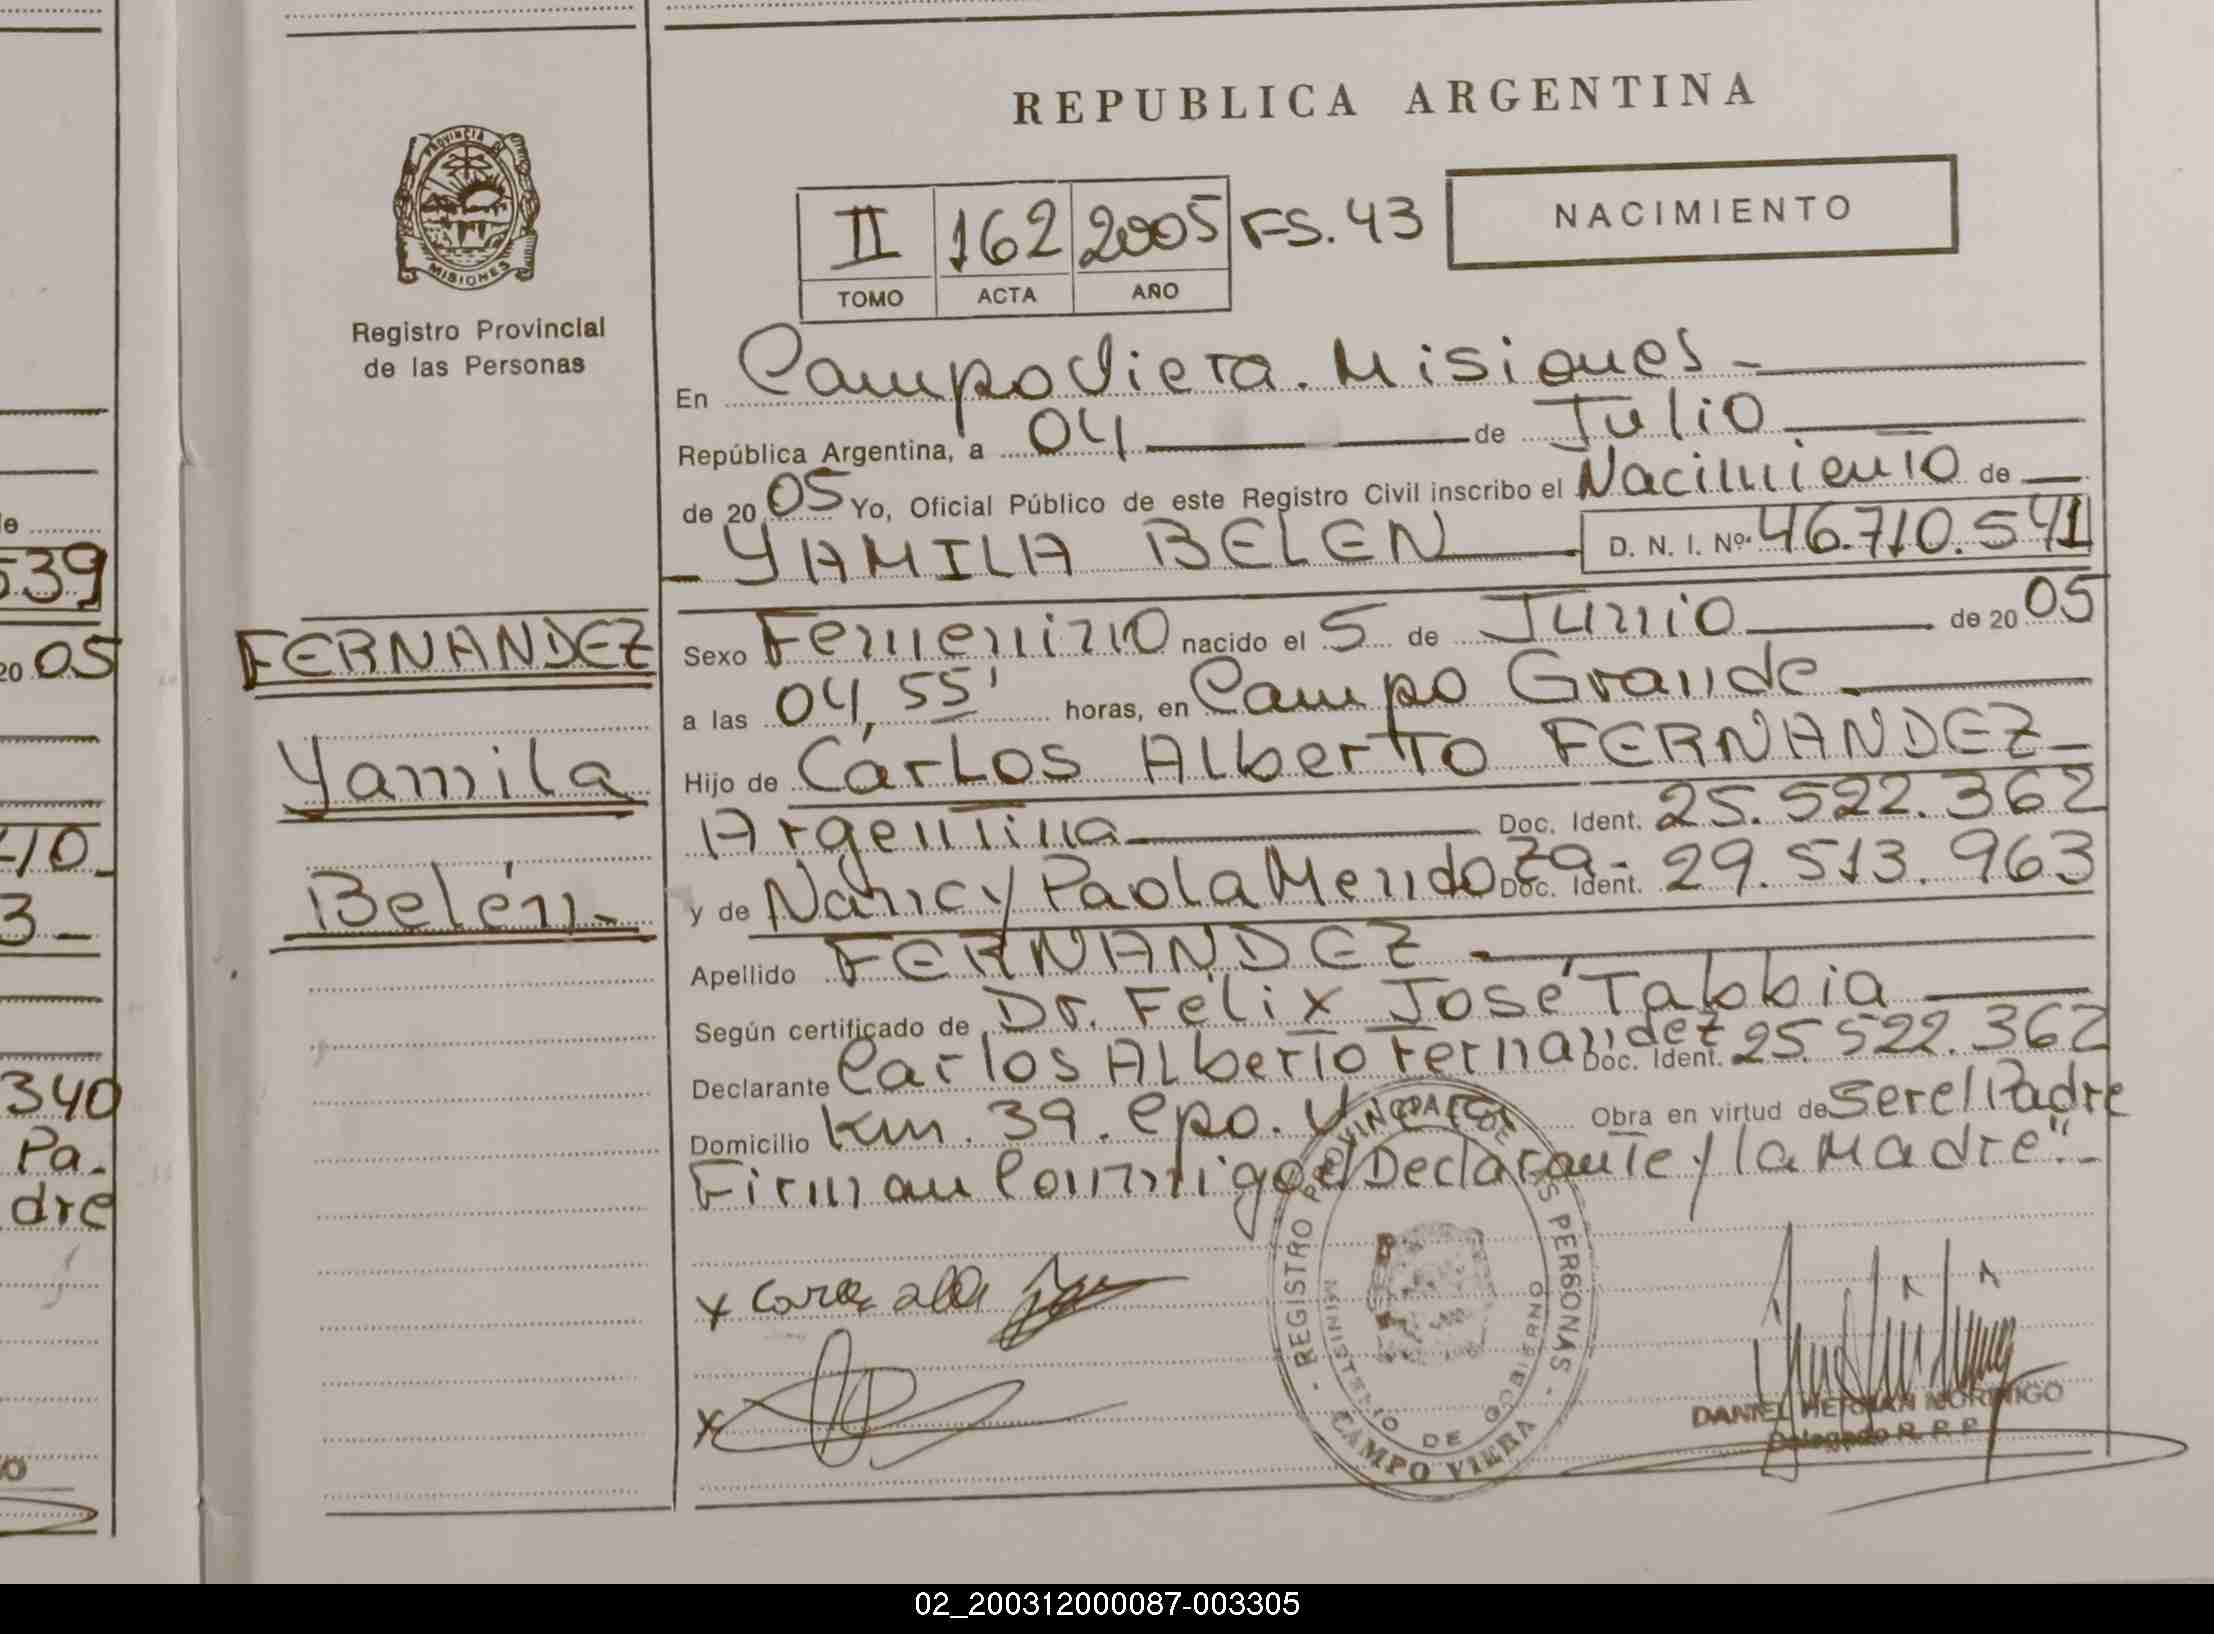 REPUBLICA ARGENTINA
PROVINCIA DE MISIONES
Registro Provincial
de las Personas
II 162 2005 FS. 43
TOMO ACTA AÑO
NACIMIENTO
En Campo Viera. Misiones
República Argentina, a 04 de Julio
de 2005 Yo, Oficial Público de este Registro Civil inscribo el Nacimiento de
YAMILA BELEN D. N. I. Nº 46.710.541
FERNANDEZ
Yamila
Belén
Sexo Femenino nacido el 5 de Junio de 2005
a las 04,55' horas, en Campo Grande
Hijo de Carlos Alberto FERNANDEZ
Argentina Doc. Ident. 25.522.362
y de Nancy Paola Mendoza Doc. Ident. 29.513.963
Apellido FERNANDEZ
Según certificado de Dr. Félix José Tabbia
Declarante Carlos Alberto Fernandez Doc. Ident. 25.522.362
Domicilio Km. 39. Cpo. Obra en virtud de Ser el Padre
Firman Conmigo el Declarante y la Madre".-
REGISTRO PROVINCIAL DE LAS PERSONAS
MINISTERIO DE GOBIERNO
CAMPO VIERA
DANIEL HERNAN MORINIGO
Delegado R. P. P.
539
20 05
340
Pa-
dre
02_200312000087-003305